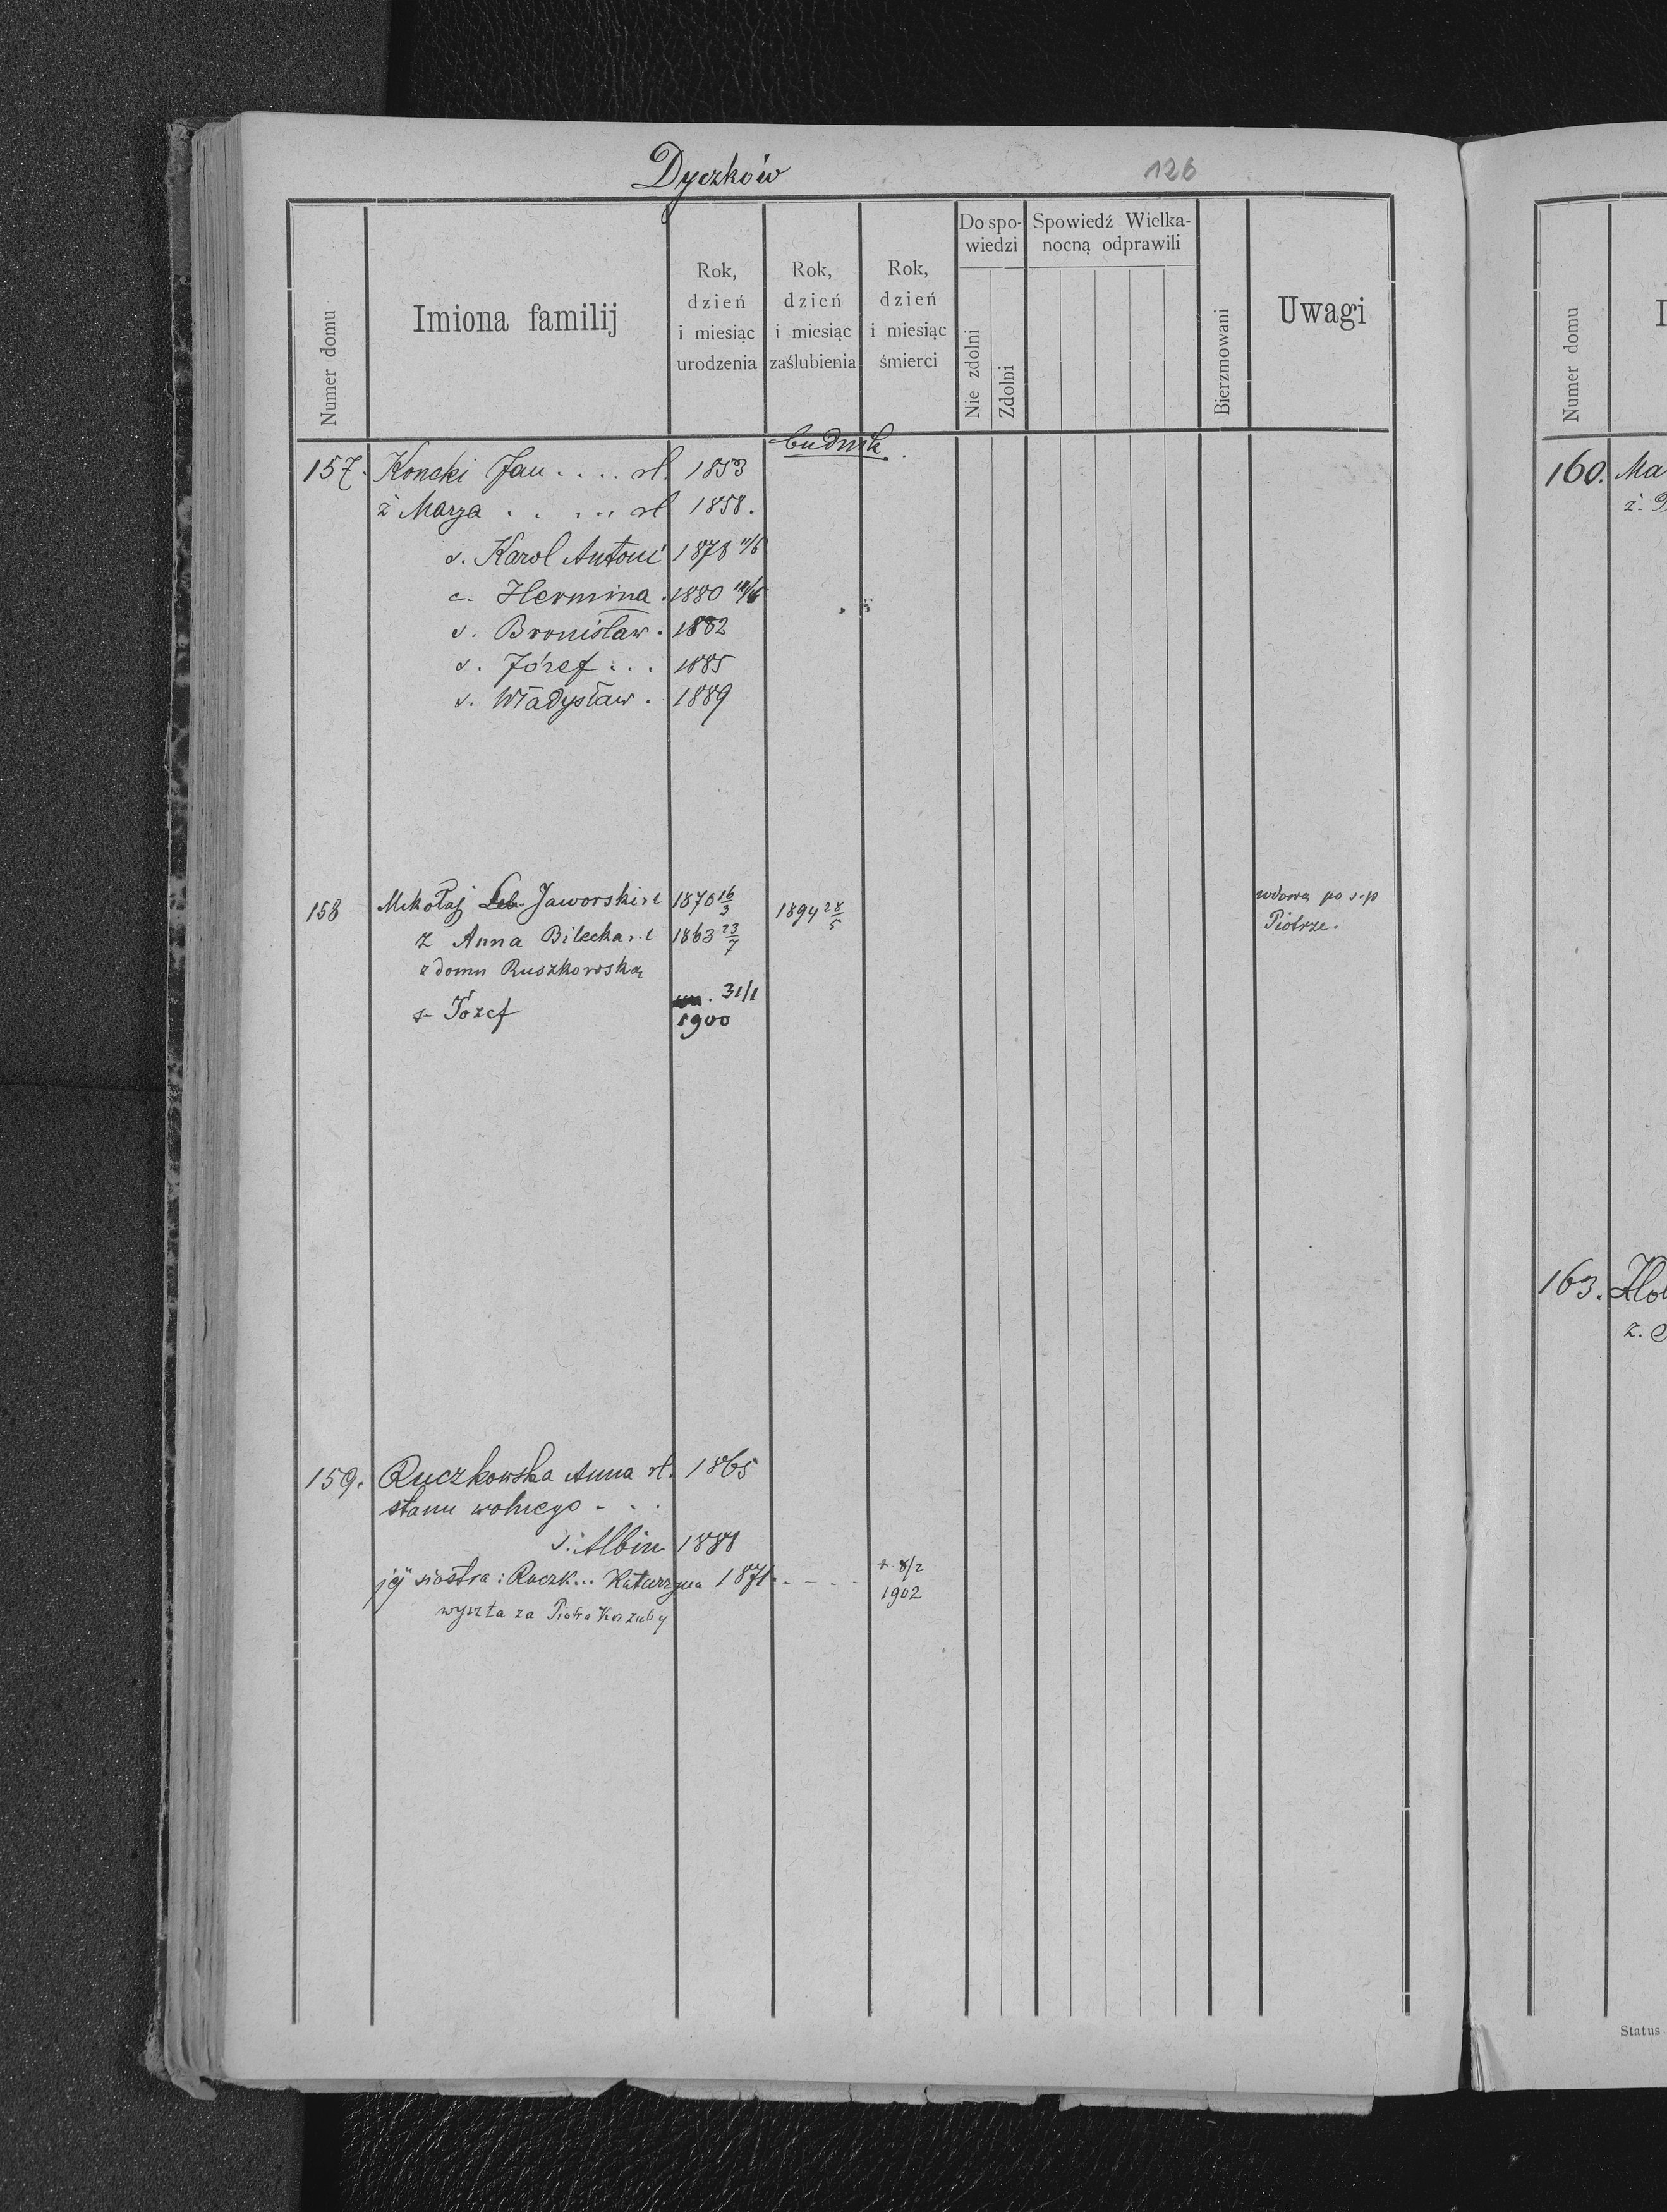 Dyczków
126
Numer domu
Imiona familij
Rok, dzień i miesiąc urodzenia
Rok, dzień i miesiąc zaślubienia
Rok, dzień i miesiąc śmierci
Do spowiedzi
Nie zdolni
Zdolni
Spowiedź Wielkanocną odprawili
Bierzmowani
Uwagi
budnik
157. Koncki Jan . . . . rł. 1853
ż Marya . . . . . rł 1858.
s. Karol Antoni 1878
c. Hermina . 1880
s. Bronisław . 1882
s. Józef . . . 1885
s. Władysław . 1889
158 Mikołaj Jaworski rł 1870 16/3 1894 28/5 wdowa po s.p
ż Anna Bilecka rł 1863 23/7 Piotrze.
z domu Ruszkowska
s Józef 31/1
1900
159. Ruczkowska Anna rł. 1865
stanu wolnego - . .
s. Albin 1888
jej siostra : Ruczk... Katarzyna 1871 . - - - + 8/2
wyszła za Piotra 1902
Numer domu
160. Ma
ż.
163.
ż.
Status